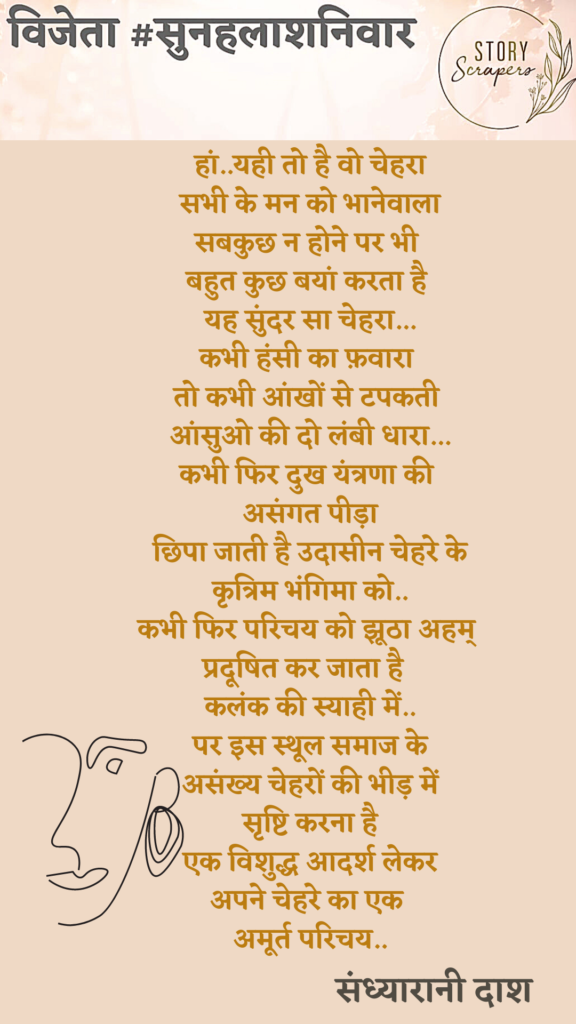 विजेता #सुनहलाशनिवार
STORY
Scrapers
हां..यही तो है वो चेहरा
सभी के मन को भानेवाला
सबकुछ न होने पर भी
बहुत कुछ बयां करता है
यह सुंदर सा चेहरा...
कभी हंसी का फ़वारा
तो कभी आंखों से टपकती
आंसुओ की दो लंबी धारा...
कभी फिर दुख यंत्रणा की
असंगत पीड़ा
छिपा जाती है उदासीन चेहरे के
कृत्रिम भंगिमा को..
कभी फिर परिचय को झूठा अहम्
प्रदूषित कर जाता है
कलंक की स्याही में..
पर इस स्थूल समाज के
असंख्य चेहरों की भीड़ में
सृष्टि करना है
एक विशुद्ध आदर्श लेकर
अपने चेहरे का एक
अमूर्त परिचय..
संध्यारानी दाश